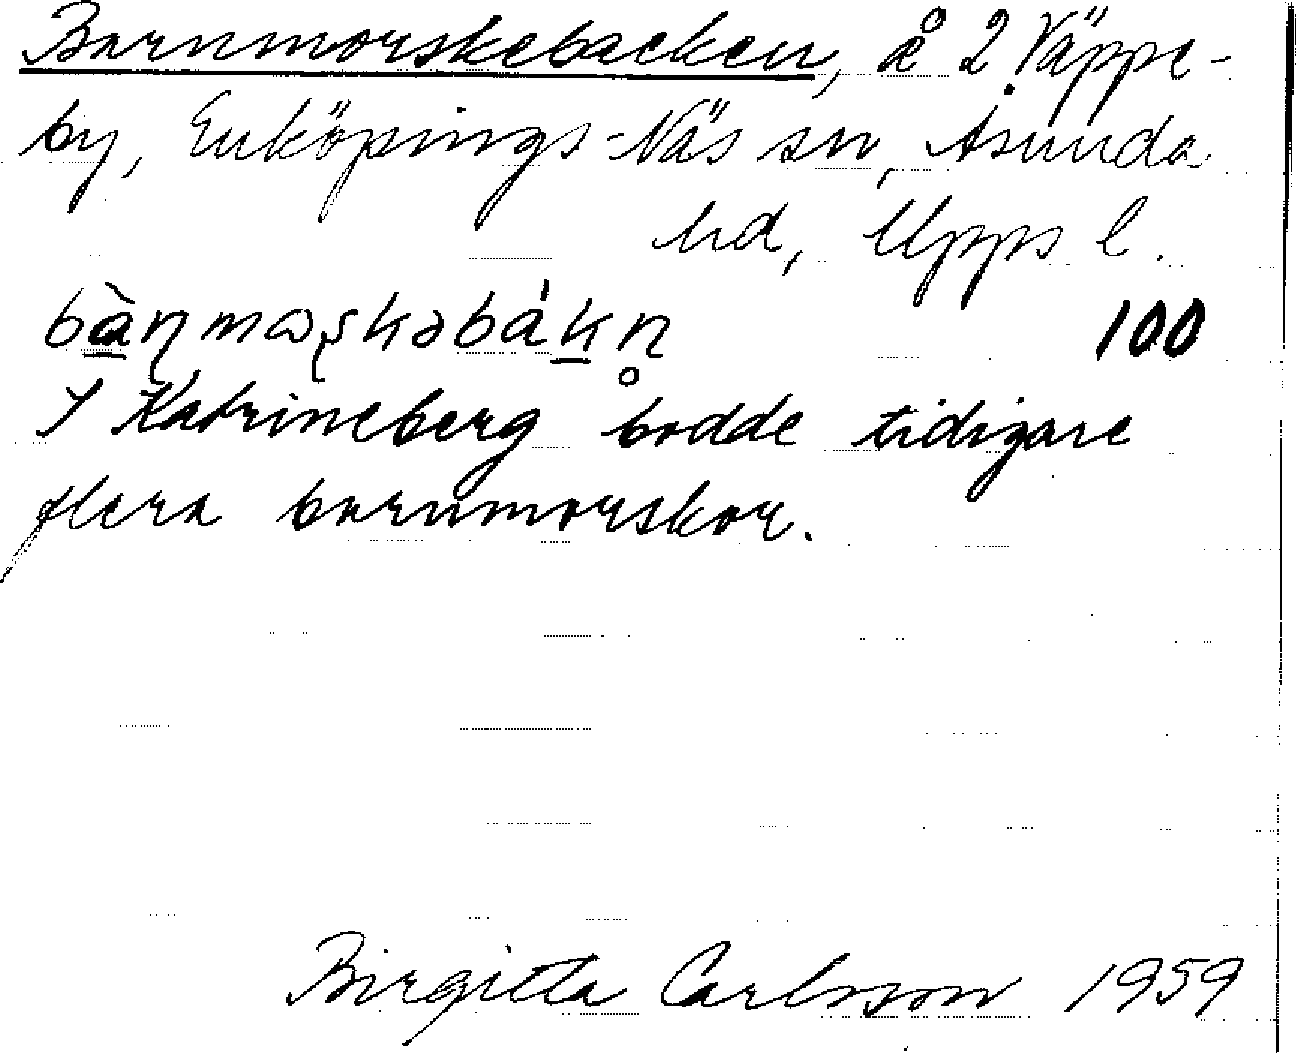 Barnmorskebacken, å 2 Väppe-
by, Enköpings-Näs sn, Åsunda
hd, Upps l.
bàɳmɷʂkəbákn̥ 100
I Katrineberg bodde tidigare
flera barnmorskor.
Birgitta Carlsson 1959